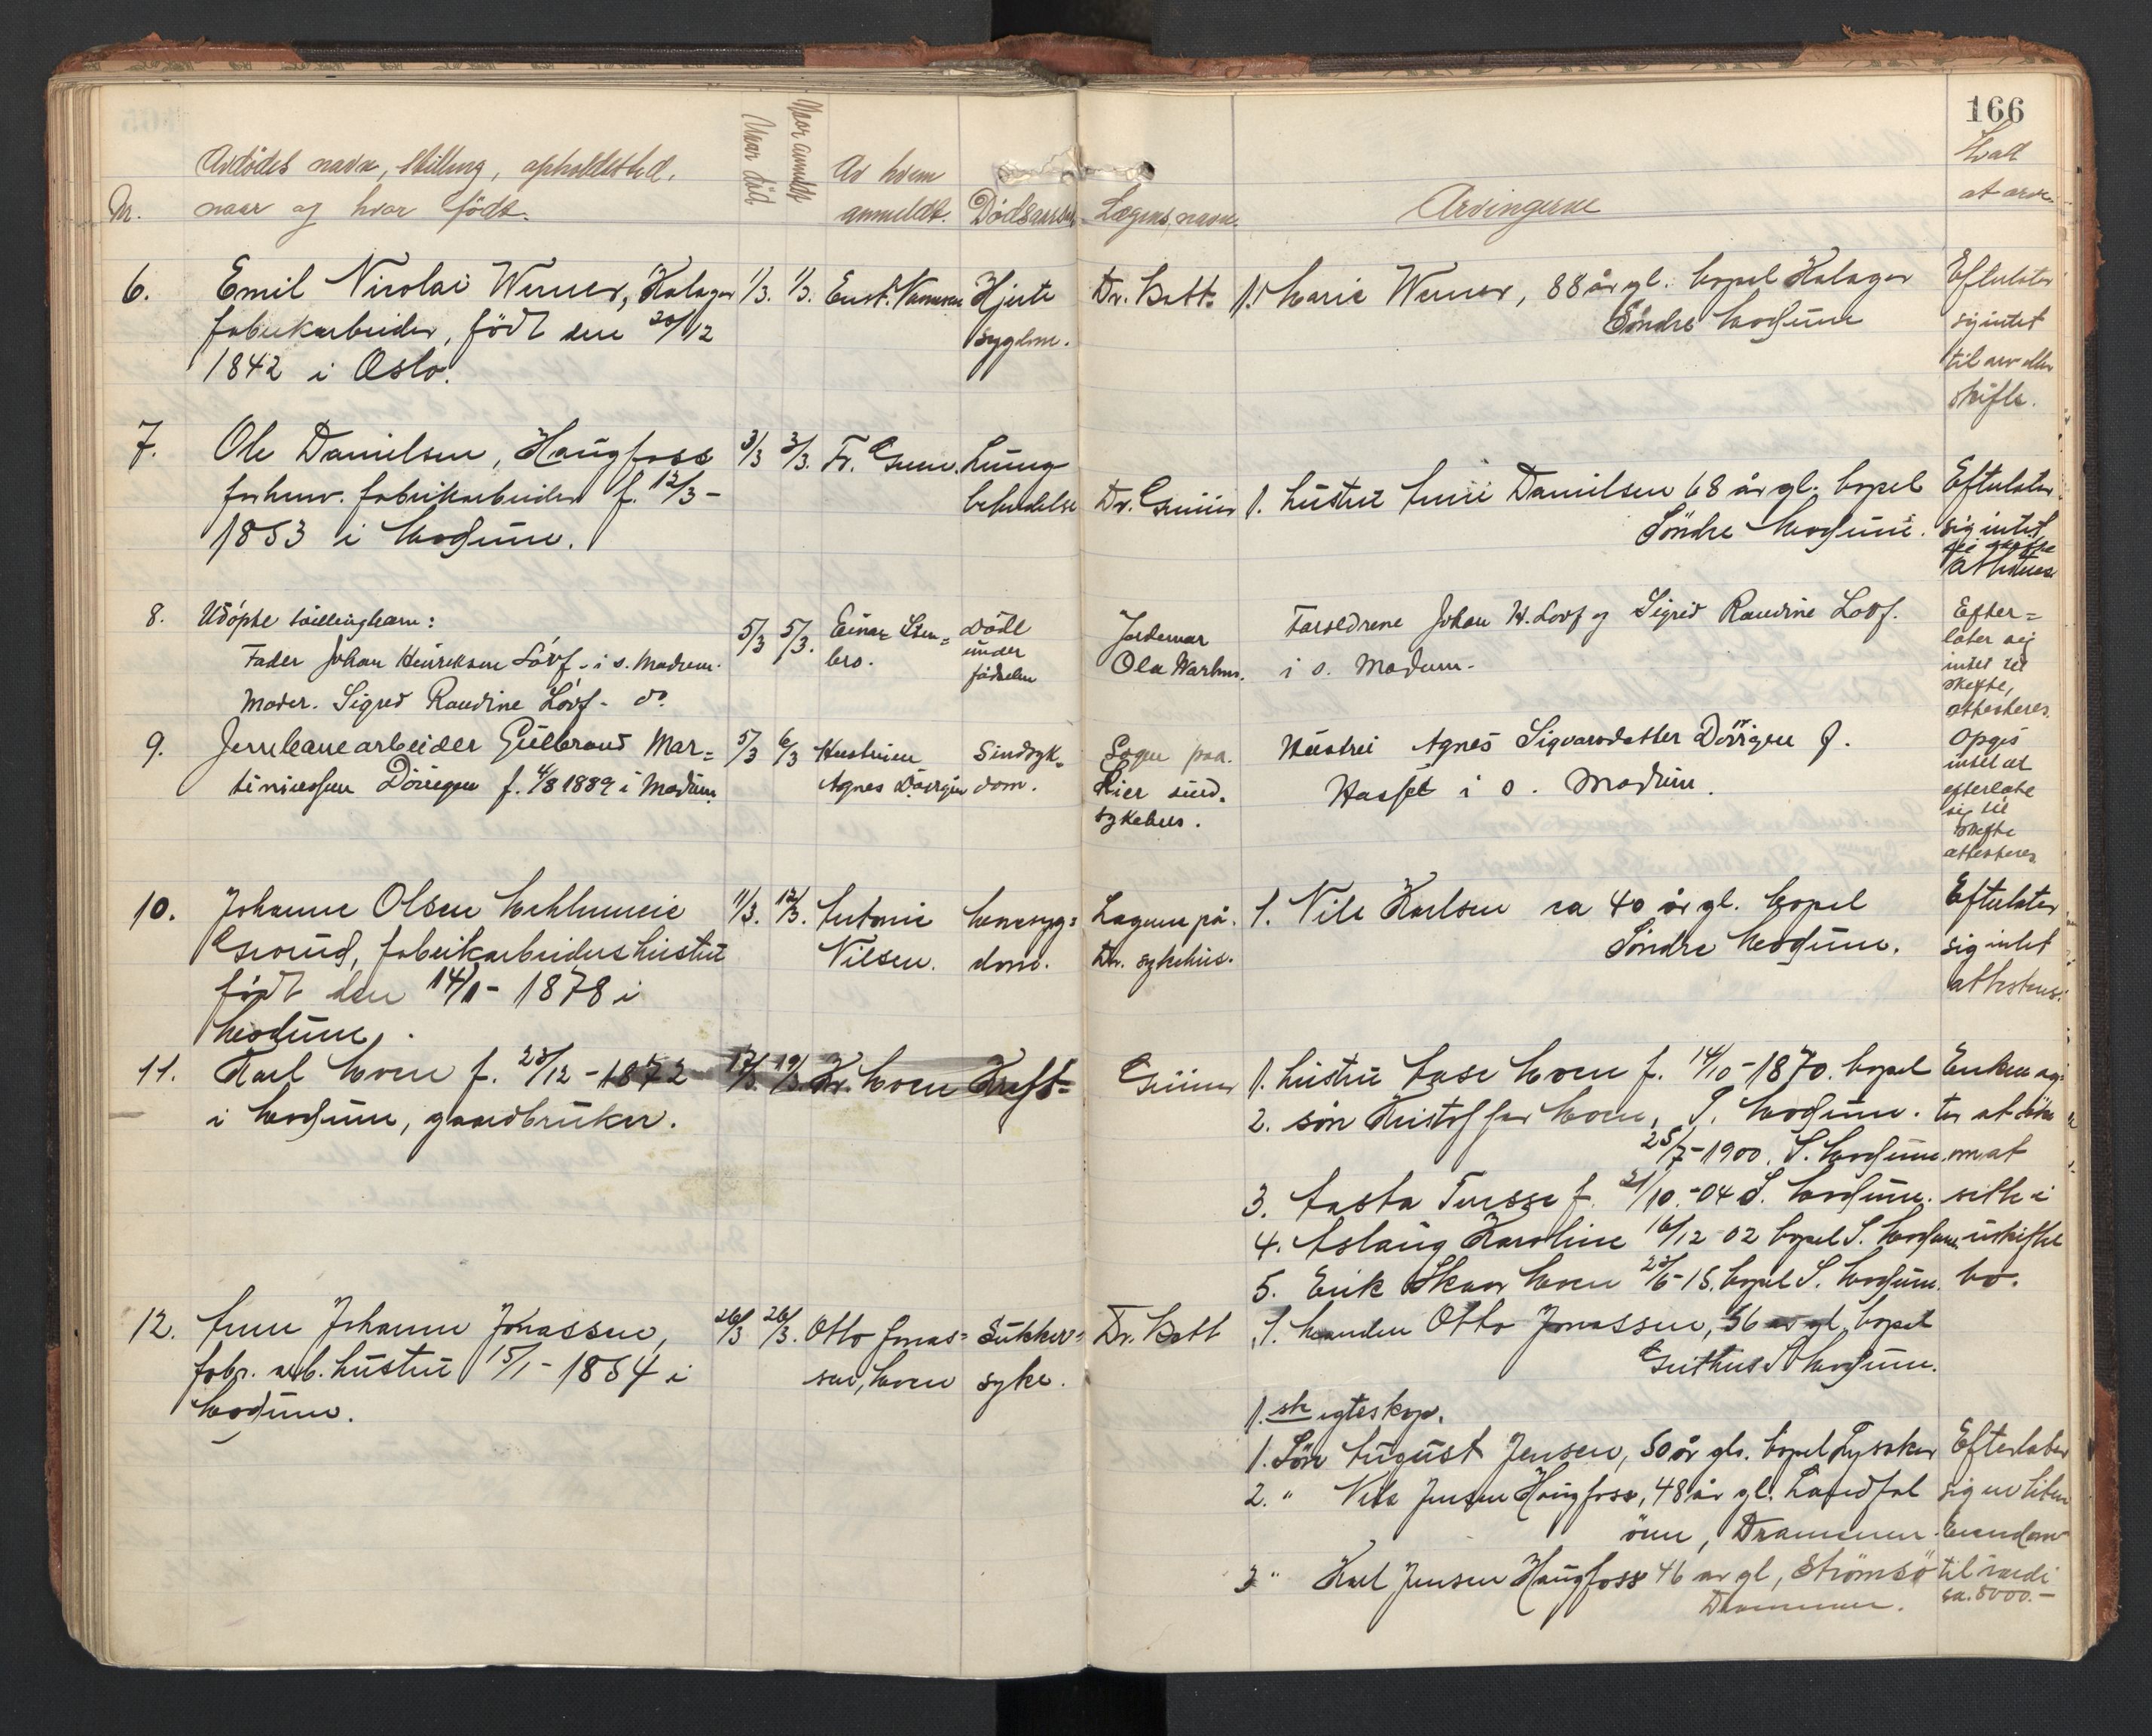 166
Avdødes navn, stilling, opholdsted,
naar og hvor født.
Nr.
Naar død
Naar anmeldt
Av hvem
anmeldt.
Dødsaarsak
Lægens navn.
Arvingerne
Hvad
at arve
6.
Emil Nicolai Werner, Kalager
fabrikarbeider, født den 20/12
1842 i Oslo.
1/3. 1/3.
Hjerte
sygdom.
Dr. Bött.
1. Marie Werner, 88 år gl. bopel Kalager
Söndre Modum
Efterlater
sig intet
til arv eller
skifte.
7.
Ole Danielsen, Haugfoss
forhenv. fabrikarbeider f. 12/3 -
1853 i Modum.
3/3 3/3.
Lunge
betendelse
1. hustru Anne Danielsen 68 år gl. bopel
Söndre Modum.
Efterlater
sig intet
attesteres
8.
Udöpte tvillingbarn:
Fader Johan Henriksen Lövf - i s. Modum.
Moder. Sigrid Raudine Lövf - do
5/3 5/3.
Einar Sten=
bro.
död
under
födselen
Jordemor
Ola
Foreldrene Johan H. Lövf og Sigrid Raudine Lövf.
i s. Modum.
Efter=
later sig
intet til
skifte,
attesteres.
9.
Jernbanearbeider Gulbrand Mar=
tiniussen f. 4/8 1889 i Modum
5/3 6/3
Hustruen
Agnes
Sindsyk=
dom.
Legen paa
Lier sind.
sykehus.
Hustru Agnes Sigvarsdatter f.
i s. Modum.
Opgis
intet at
efterlate
sig til
skifte
attesteres
10.
Johanne Olsen
fabrikarbeiders hustru
født den 14/1 - 1878 i
Modum.
11/3. 12/3.
Antonie
Nilsen.
Mavesyg=
dom.
Lægerne på
Dr. sykehus.
1. Nils Karlsen ca 40 år gl. bopel
Söndre Modum.
Efterlater
sig intet
attesteres.
11.
Karl Moen f. 23/12 - 1872
i Modum, gaardbruker.
17/3. 19/3.
Kr. Moen
Kreft=
1. hustru Aase Moen f. 14/10 - 1870. bopel
2. søn Kristoffer Moen, S. Modum.
25/7 - 1900. S. Modum.
3. Aasta f. 21/10 - 04 S. Modum.
4. Aslaug Karoline 16/12 02 bopel S. Modum
5. Erik Skar Moen 23/6 - 15. bopel S. Modum.
Enken ag=
ter at søke
om at
sitte i
uskiftet
bo.
12.
Anne Johanne Jonassen,
fabr. arb. hustru 15/1 - 1854 i
Modum.
26/3 26/3.
Otto Jonas=
sen, Moen
Sukker=
syke.
Dr. Bött
1. Manden Otto Jonassen, 56 år gl, bopel
Geithus S Modum.
1.ste egteskap.
1. Sön August Jensen, 50 år gl. bopel Lysaker
2. " Nils Jensen Haugfoss, 48 år gl. Landfal
öen, Drammen
3 " Karl Jensen Haugfoss 46 år gl, Strömsö
Drammen.
Efterlater
sig en liten
Eiendom
til værdi
ca. 5000.-